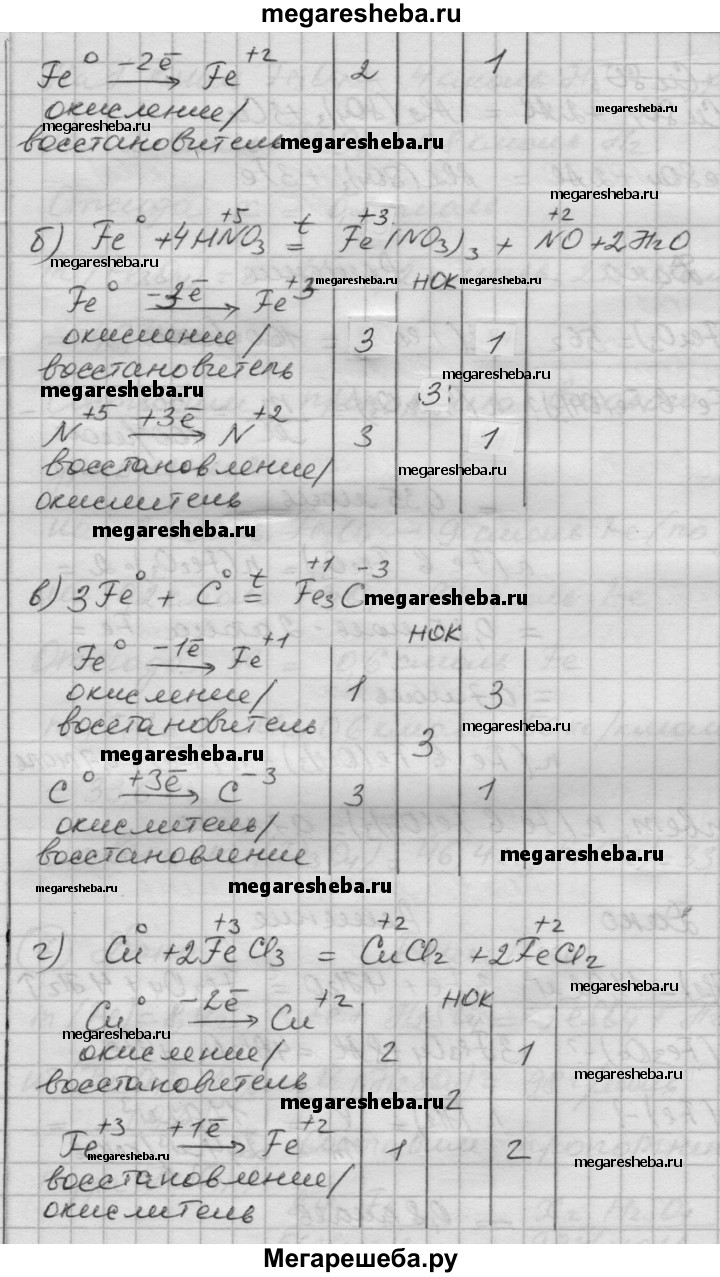 megaresheba.ru
Fe⁰ —-2ē→ Fe⁺² | 2 | | 1
окисление/
megaresheba.ru
megaresheba.ru
восстановитель
megaresheba.ru
megaresheba.ru
б) Fe⁰ + 4HN⁺⁵O₃ =ᵗ Fe⁺³(NO₃)₃ + N⁺²O + 2H₂O
megaresheba.ru
Fe⁰ —-3ē→ Fe⁺³ megaresheba.ru НОК megaresheba.ru
окисление/ | 3 | | 1
восстановитель megaresheba.ru
megaresheba.ru 3
N⁺⁵ —+3ē→ N⁺² | 3 | | 1
восстановление/ megaresheba.ru
окислитель
megaresheba.ru
в) 3Fe⁰ + C⁰ =ᵗ Fe₃⁺¹C⁻³ megaresheba.ru
НОК
Fe⁰ —-1ē→ Fe⁺¹
окисление/ | 1 | | 3
восстановитель megaresheba.ru
megaresheba.ru 3
C⁰ —+3ē→ C⁻³ | 3 | | 1
окислитель/
восстановление megaresheba.ru
megaresheba.ru megaresheba.ru
г) Cu⁰ + 2Fe⁺³Cl₃ = Cu⁺²Cl₂ + 2Fe⁺²Cl₂
megaresheba.ru
Cu⁰ —-2ē→ Cu⁺² НОК
megaresheba.ru
окисление/ | 2 | | 1
восстановитель megaresheba.ru
megaresheba.ru 2
Fe⁺³ —+1ē→ Fe⁺² | 1 | | 2
megaresheba.ru megaresheba.ru
восстановление/
окислитель megaresheba.ru
Мегарешеба.ру